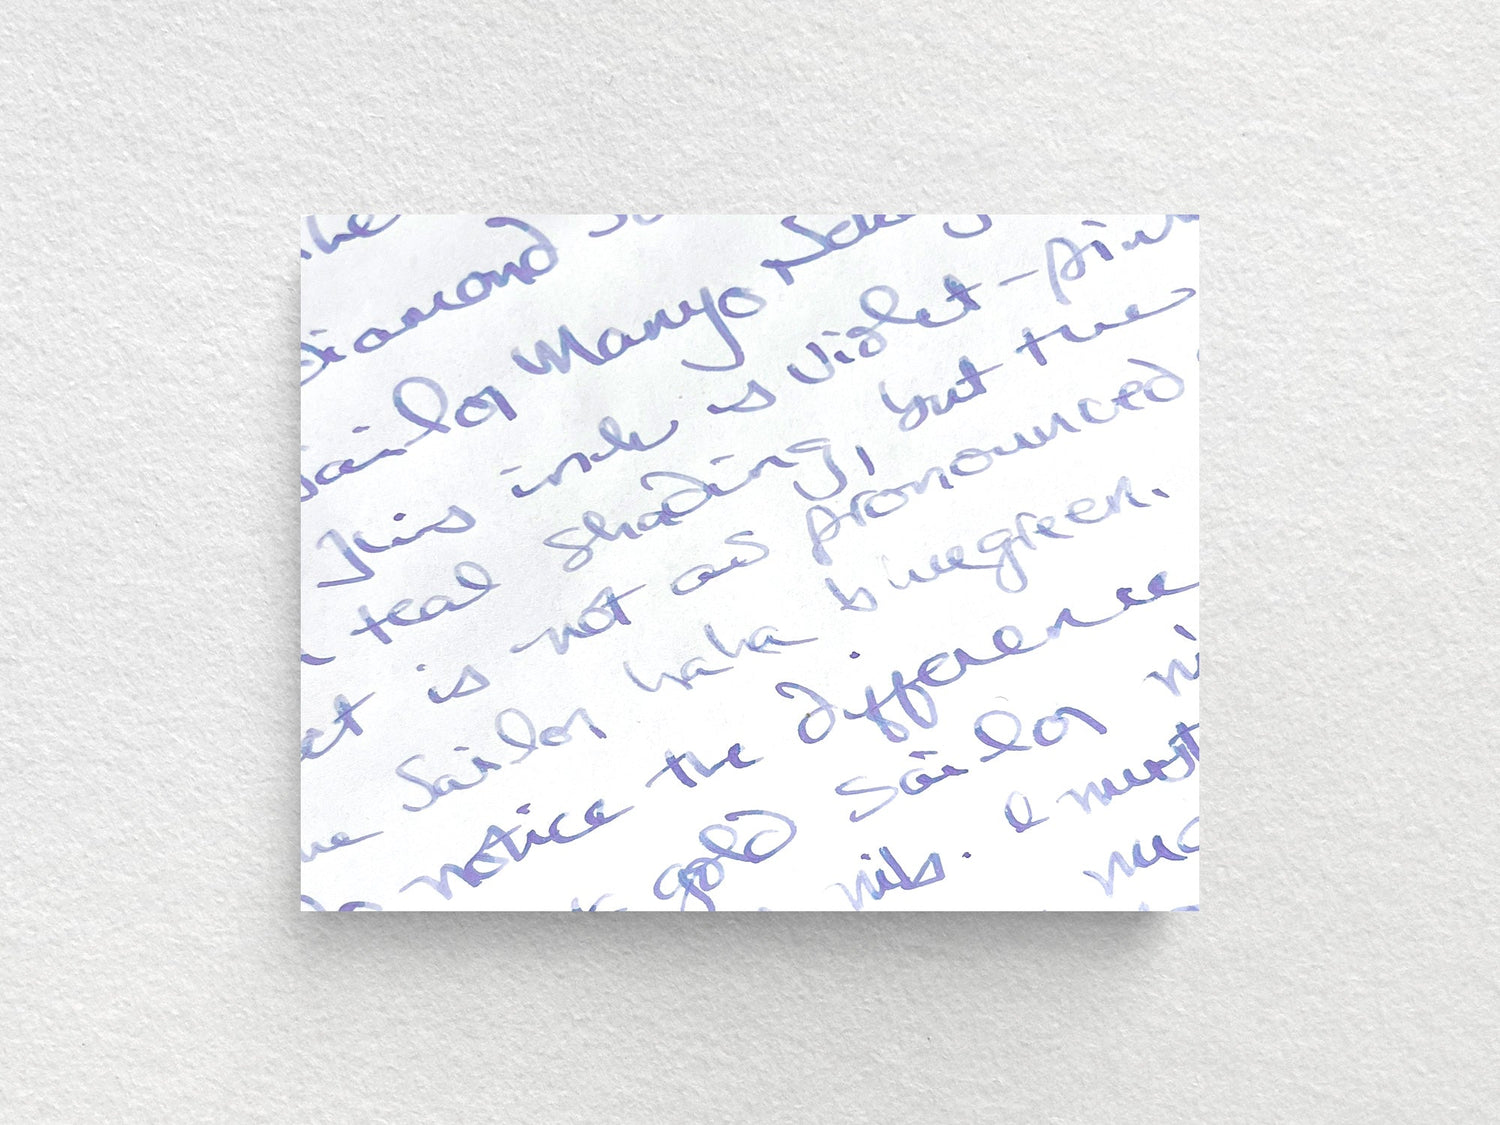 the
Diamond
Sailor Manyo
This ink is violet-pin
a teal shading, but the
ct is not as pronounced
Sailor haha bluegreen.
notice the difference
gold Sailor ni
nib. I must
muc